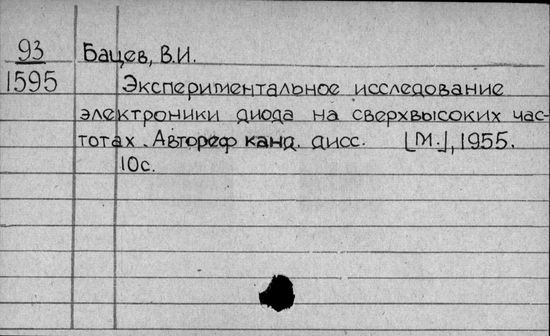 93 Бацев, В.И.
1595 Экспериментальное исследование
электроники диода на сверхвысоких час-
тотах. Автореф канд. дисс. [М.], 1955.
10с.